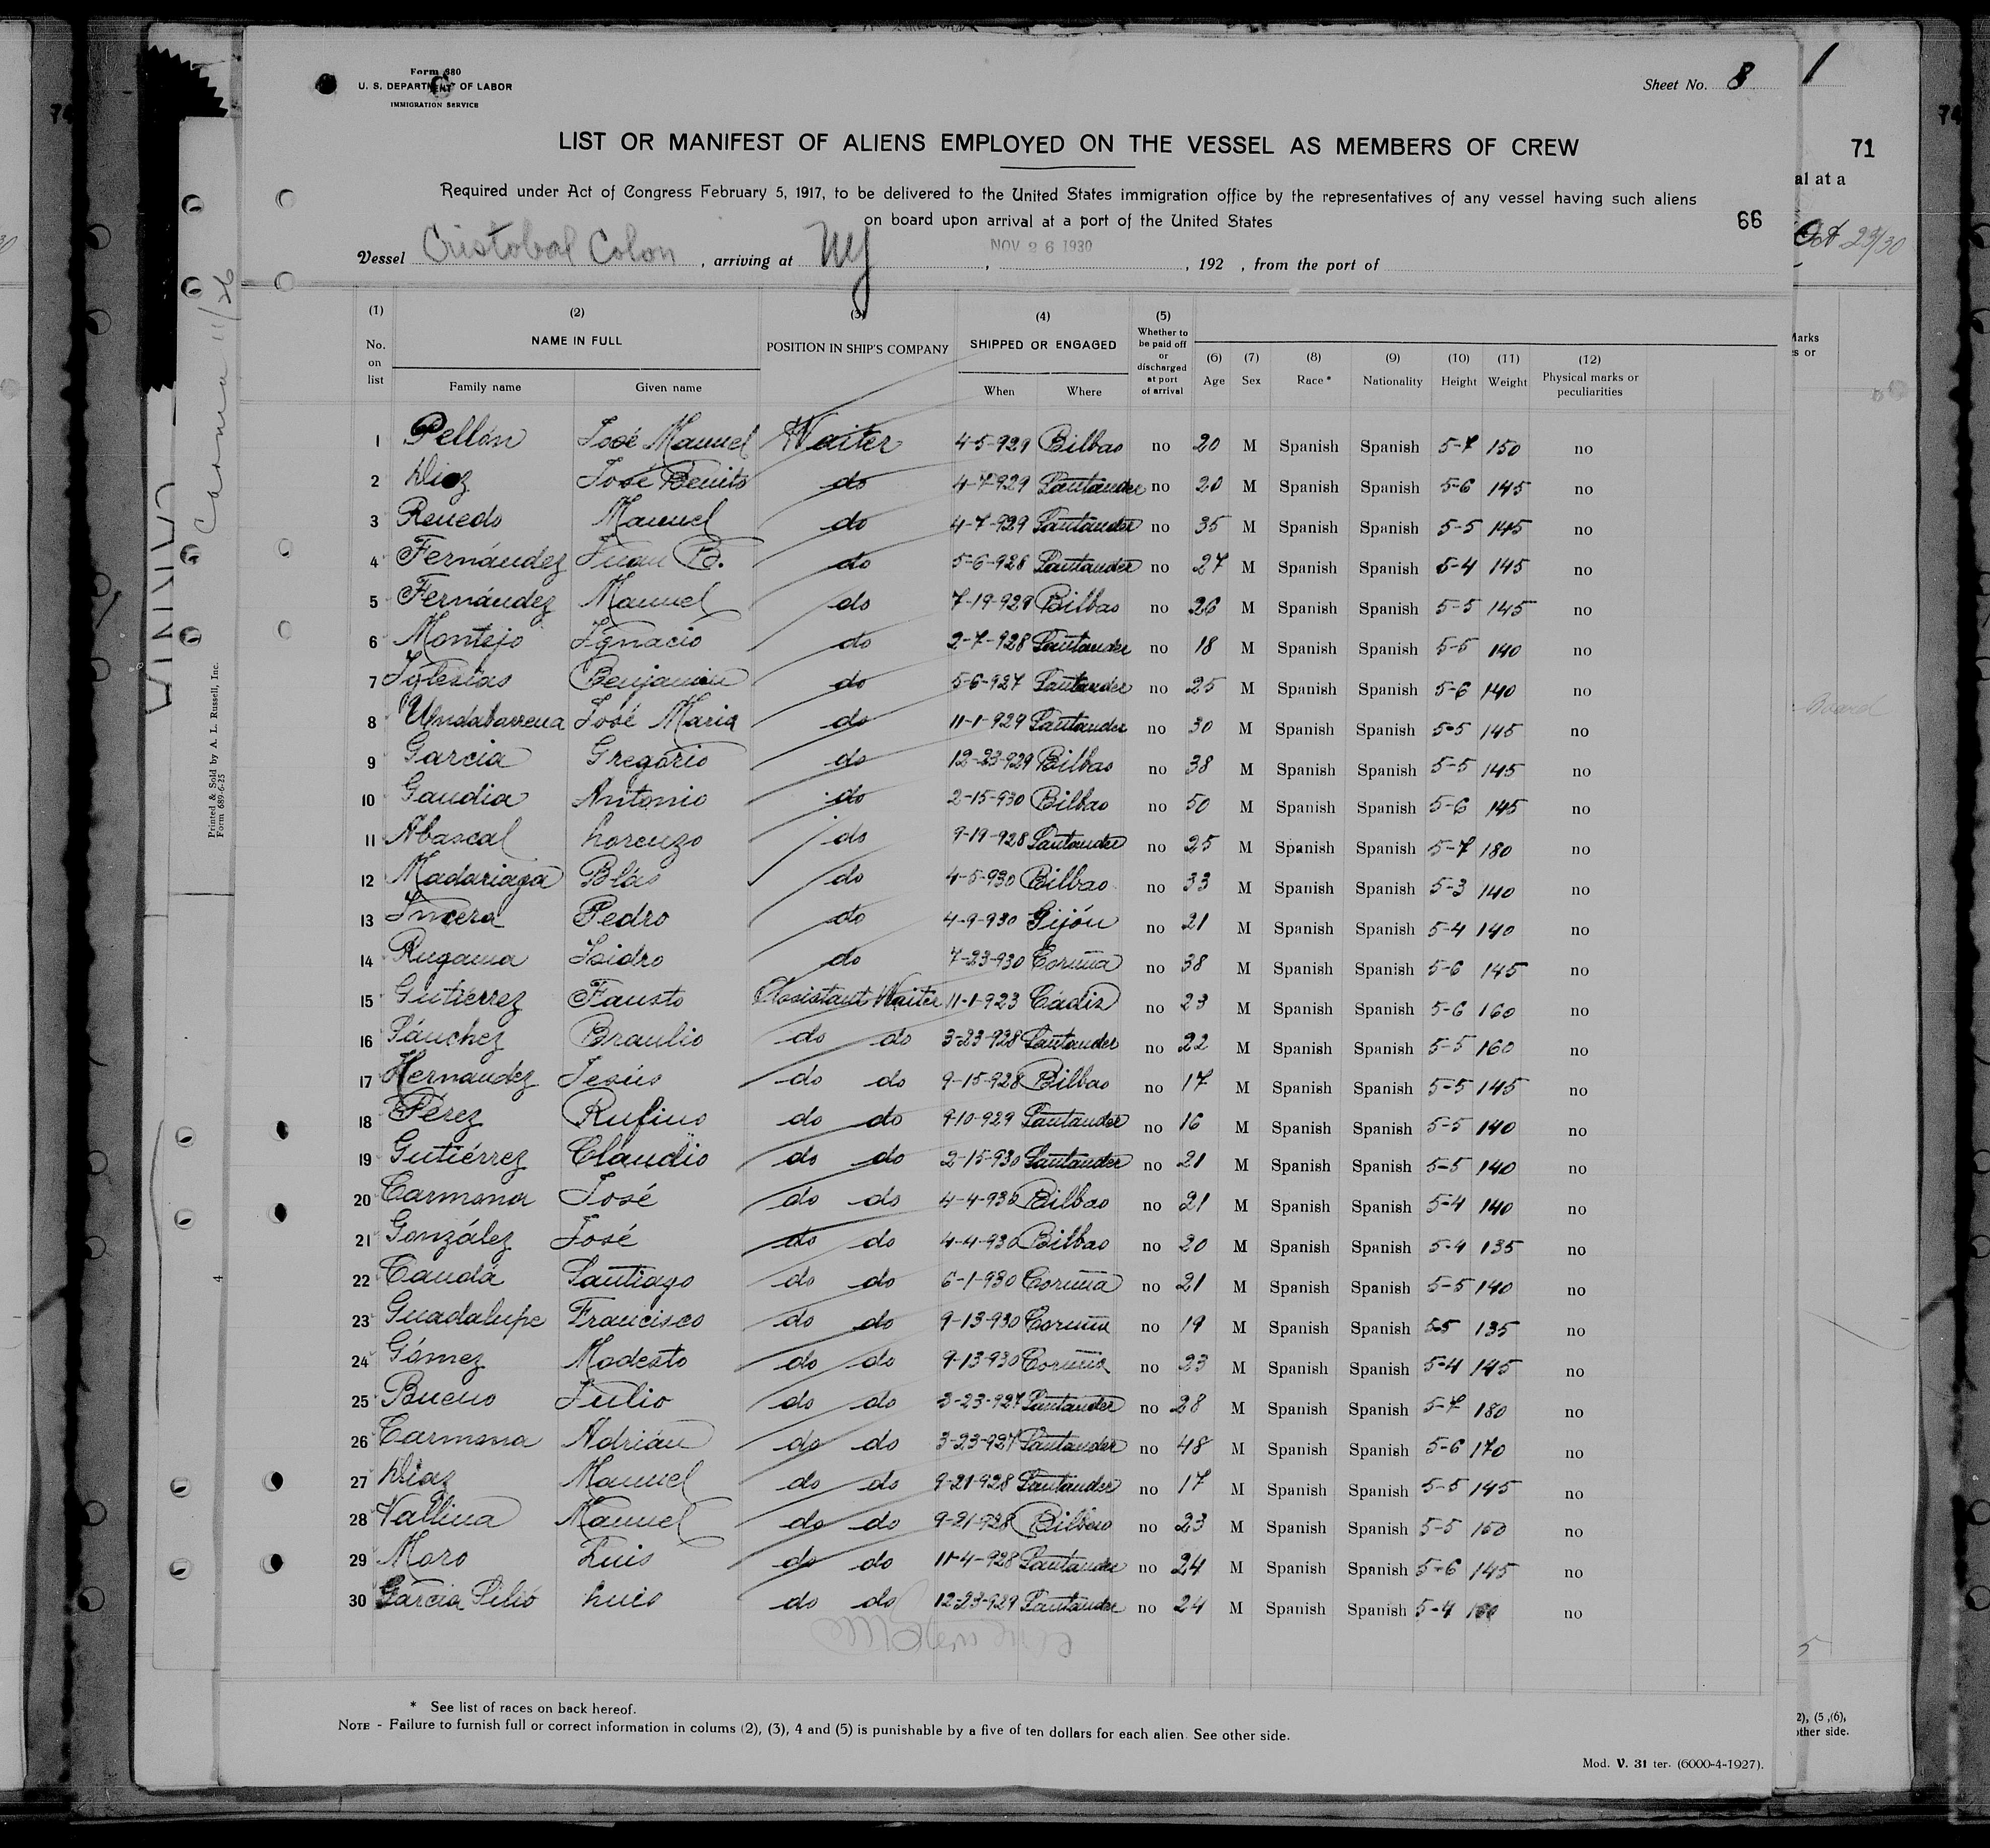 Form 680
U. S. DEPARTMENT OF LABOR
IMMIGRATION SERVICE
Sheet No. 8
1
LIST OR MANIFEST OF ALIENS EMPLOYED ON THE VESSEL AS MEMBERS OF CREW
71
Required under Act of Congress February 5, 1917, to be delivered to the United States immigration office by the representatives of any vessel having such aliens
al at a
on board upon arrival at a port of the United States
66
Oct 23/30
NOV 26 1930
Vessel Cristobal Colon , arriving at NY , , 192 , from the port of
(1) (2) (3) (4) (5)
No. on list
NAME IN FULL
Family name Given name
POSITION IN SHIP'S COMPANY
SHIPPED OR ENGAGED
When Where
Whether to be paid off or discharged at port of arrival
(6) Age (7) Sex (8) Race * (9) Nationality (10) Height (11) Weight (12) Physical marks or peculiarities
1 Pellón José Manuel Waiter 4-5-929 Bilbao no 20 M Spanish Spanish 5-7 150 no
2 Diaz José Benito do 4-7-929 Santander no 20 M Spanish Spanish 5-6 145 no
3 Renedo Manuel do 4-7-929 Santander no 35 M Spanish Spanish 5-5 145 no
4 Fernández Juan B. do 5-6-928 Santander no 27 M Spanish Spanish 5-4 145 no
5 Fernández Manuel do 7-19-929 Bilbao no 26 M Spanish Spanish 5-5 145 no
6 Montejo Ignacio do 2-7-928 Santander no 18 M Spanish Spanish 5-5 140 no
7 Iglesias Benjamin do 5-6-927 Santander no 25 M Spanish Spanish 5-6 140 no
8 Undabarrena José Maria do 11-1-929 Santander no 30 M Spanish Spanish 5-5 145 no
9 Garcia Gregorio do 12-23-929 Bilbao no 38 M Spanish Spanish 5-5 145 no
10 Gandia Antonio do 2-15-930 Bilbao no 50 M Spanish Spanish 5-6 145 no
11 Abascal Lorenzo do 9-19-928 Santander no 25 M Spanish Spanish 5-7 180 no
12 Madariaga Blás do 4-5-930 Bilbao no 33 M Spanish Spanish 5-3 140 no
13 Incera Pedro do 4-9-930 Gijón no 21 M Spanish Spanish 5-4 140 no
14 Rugama Isidro do 7-23-930 Coruña no 38 M Spanish Spanish 5-6 145 no
15 Gutiérrez Fausto Assistant Waiter 11-1-923 Cádiz no 23 M Spanish Spanish 5-6 160 no
16 Sánchez Braulio do do 3-23-928 Santander no 22 M Spanish Spanish 5-5 160 no
17 Hernandez Jesús do do 9-15-928 Bilbao no 17 M Spanish Spanish 5-5 145 no
18 Pérez Rufino do do 9-10-929 Santander no 16 M Spanish Spanish 5-5 140 no
19 Gutiérrez Claudio do do 2-15-930 Santander no 21 M Spanish Spanish 5-5 140 no
20 Carmona José do do 4-4-930 Bilbao no 21 M Spanish Spanish 5-4 140 no
21 González José do do 4-4-930 Bilbao no 20 M Spanish Spanish 5-4 135 no
22 Candá Santiago do do 6-1-930 Coruña no 21 M Spanish Spanish 5-5 140 no
23 Guadalupe Francisco do do 9-13-930 Coruña no 19 M Spanish Spanish 5-5 135 no
24 Gómez Modesto do do 9-13-930 Coruña no 23 M Spanish Spanish 5-4 145 no
25 Bueno Julio do do 3-23-927 Santander no 28 M Spanish Spanish 5-7 180 no
26 Carmona Adrián do do 3-23-927 Santander no 48 M Spanish Spanish 5-6 170 no
27 Diaz Manuel do do 9-21-928 Santander no 17 M Spanish Spanish 5-5 145 no
28 Vallina Manuel do do 9-21-928 Bilbao no 23 M Spanish Spanish 5-5 150 no
29 Moro Luis do do 11-4-928 Santander no 24 M Spanish Spanish 5-6 145 no
30 Garcia Silió Luis do do 12-23-929 Santander no 24 M Spanish Spanish 5-4 no
* See list of races on back hereof.
NOTE - Failure to furnish full or correct information in colums (2), (3), 4 and (5) is punishable by a five of ten dollars for each alien. See other side.
Mod. V. 31 ter. (6000-4-1927).
Printed & Sold by A. L. Russell, Inc.
Form 689-6-25
4
Marks
s or
2), (5 ,(6),
other side.